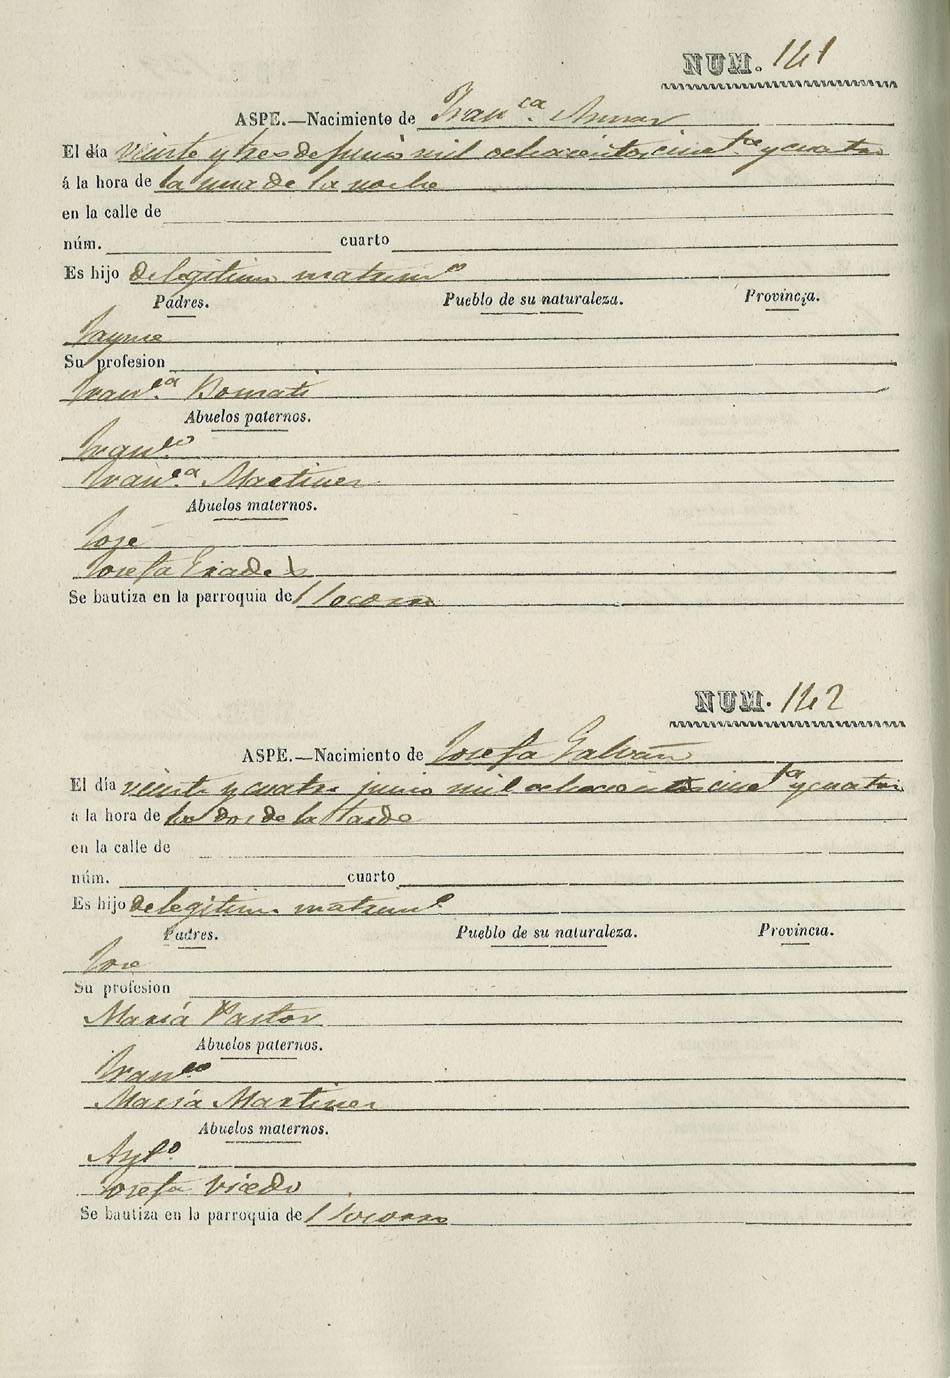 NUM. 141
ASPE.—Nacimiento de Fran.ca
El dia veinte y tres de junio mil ochocientos cincta y cuatro
á la hora de la una de la noche
en la calle de
núm. cuarto
Es hijo de legitimo matrimo
Padres. Pueblo de su naturaleza. Provincia.
Jayme
Su profesion
Fran.ca Bonmati
Abuelos paternos.
Fran.co
Fran.ca Martinez
Abuelos maternos.
José
Josefa
Se bautiza en la parroquia de
NUM. 142
ASPE.—Nacimiento de Josefa Galván
El día veinte y cuatro junio mil ochocientos cincta y cuatro
a la hora de las dos de la tarde
en la calle de
núm. cuarto
Es hijo de legitimo matrimo
Padres. Pueblo de su naturaleza. Provincia.
Jose
Su profesion
María Pastor
Abuelos paternos.
Fran.co
María Martinez
Abuelos maternos.
Josefa Vicedo
Se bautiza en la parroquia de